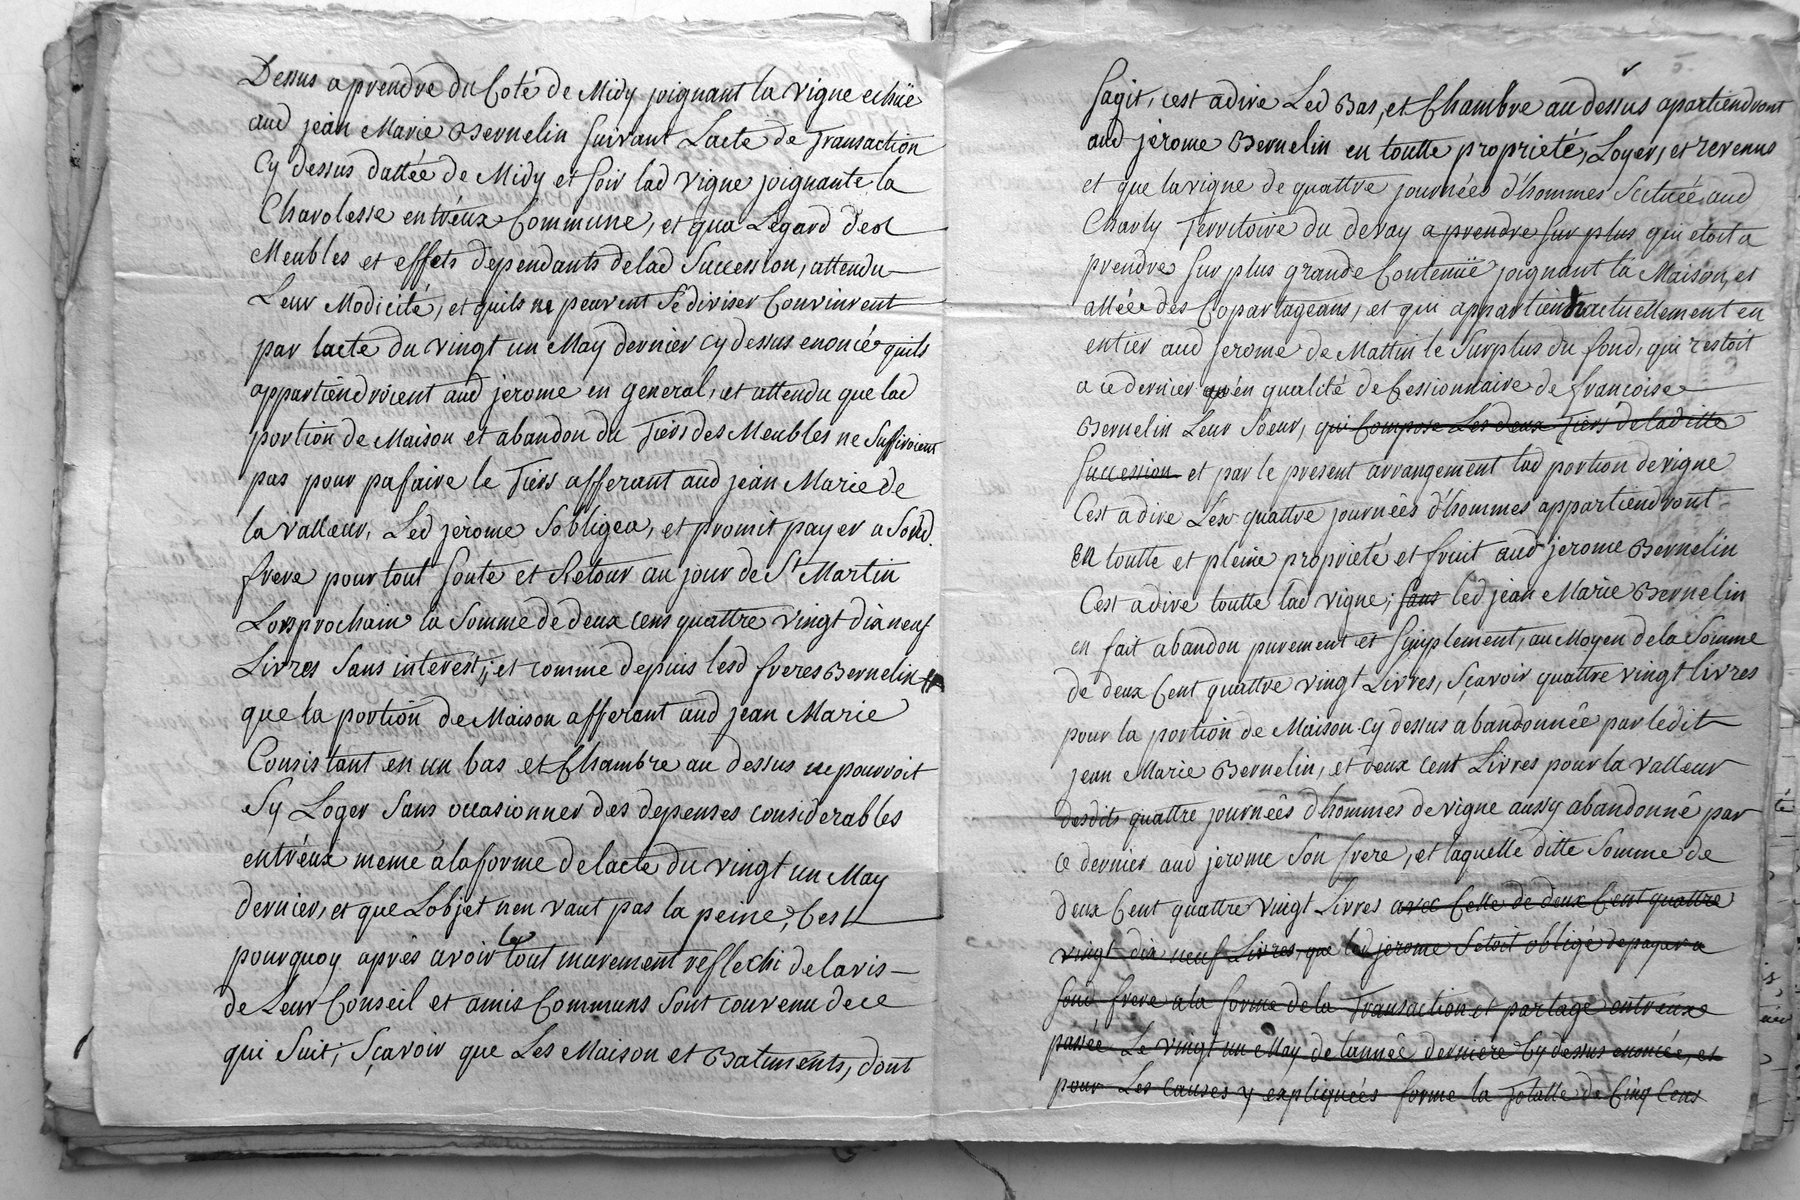 Dessus a prendre du Coté de Midy joignant la vigne echüe
aud jean Marie Bernelin suivant L'acte de Transaction
Cy dessus dattée de Midy et soir lad vigne joignante la
Charolesse entréux Commune, et qua Legard des
Meubles et effets dependants delad Succession, attendu
Leur Modicité, et quils ne peuvent Se diviser Convinrent
par lacte du vingt un May dernier cy dessus enoncé quils
appartiendroient aud jerome en general, et attendu que lad
portion de Maison et abandon du Tiers des Meubles ne Suffiroient
pas pour pafaire le Tiers afferant aud jean Marie de
la valleur, Led jerome Sobligea, et promit payer a Sond.
frere pour tout Soute et Retour au jour de St Martin
Lors prochain la Somme de deux cens quattre vingt dix neuf
Livres Sans interest, et comme depuis lesd freres Bernelin
que la portion de Maison afferant aud jean Marie
Consistant en un bas et Chambre au dessus ne pourroit
Sy Loger Sans occasionner des depenses considerables
entréux meme a la forme de lacte du vingt un May
dernier, et que Lobjet nen vaut pas la peine, Cest
pourquoy aprés avoir le tout murement reflechi de lavis
de Leur Conseil et amis Communs Sont convenu de ce
qui Suit, Sçavoir que Les Maison et Batiments, dont
sagit, cest adire Led Bas, et Chambre au dessus apartiendront
aud jérome Bernelin en toutte proprieté, Loyer, et revenus
et que la vigne de quattre journées d'hommes Scituée aud
Charly Territoire du devay a prendre Sur plus qui etoit a
prendre Sur plus grande Contenüe joignant la Maison, et
allée des Copartageans, et qui appartient actuellement en
entier aud jerome de Mattin le Surplus du fond, qui restoit
a ce dernier en qualité de Cessionnaire de francoise
Bernelin Leur Soeur, qui Compose Les deux Tiers de laditte
Succession et par le present arrangement lad portion de vigne
Cest a dire Les quattre journées d'hommes appartiendront
En toutte et pleine proprieté et fruit aud jerome Bernelin
Cest a dire toutte lad vigne; led jean Marie Bernelin
en fait abandon purement et Simplement, au Moyen de la Somme
de deux Cent quattre vingt Livres, Sçavoir quattre vingt livres
pour la portion de Maison cy dessus abandonnée par ledit
jean Marie Bernelin, et deux cent Livres pour la valleur
desdits quattre journées dhommes de vigne aussy abandonné par
ce dernier aud jerome Son frere, et laquelle ditte Somme de
deux Cent quattre vingt Livres avec Celle de deux Cent quattre
vingt dix neuf Livres, que led jerome Setoit obligé de payer a
Sond frere a la forme de la Transaction et partage entreux
passée Le vingt un May de lannée derniere Cy dessus enoncée, et
pour Les Causes y expliquées forme la Totalle de Cinq Cens